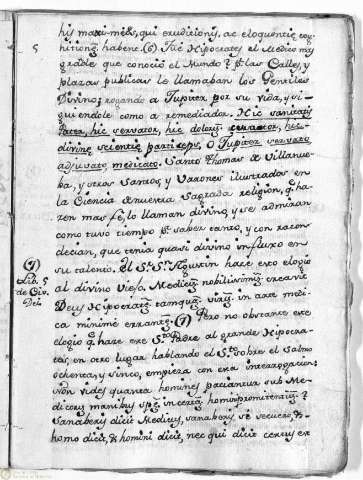 5
hij maximè&s, qui erudicionij, ac eloquentie cog
nitionẽ habent. (6) Fuè Hipocrates el Medico mas
grãde que conoció el Mundo q̃ pr̃ las Calles, y
plazas publicas le llamaban los Gentiles
Divino; rogando a Jupiter por su vida, y si
guiendole como a remediador. Hic sanitatis
Pater, hic servator, hic dolorũ curator, hic
divinæ scientiæ particeps, O Jupiter servato
adjuvato medicato. Santo Thomas de Villanue
ba, y otros Santos, y Varones ilustrados en
la Ciencia de nuestra Sagrada religion, q̃ ha
zen mas fe, lo llaman divino, y se admiran
como tuvo tiempo pr̃ saber tanto, y con razon
decian, que tenia quasi divino influxo en
su talento. El Sr. S. Agustin hace este elogio
al divino viejo. Medicũ nobilissimũ creavit
Deus Hipocratẽ tamquã virũ in arte medi
ca minimè errantẽ. (7) Pero no obstante este
(7)
Lib. 5
de Civ.
Dei
elogio q̃ hace este Sto. Padre al grande Hipocra
tes, en otro lugar hablando el Sto. sobre el Salmo
ochenta, y sinco, empieza con esta interrogacion:
Non vides quanta homines patiantur sub Me
dicorũ manibus spẽ incertã homini promitentiũ?
Sanaberis dicit Medicus, sanaberis si secuero, &
homo dicit, & homini dicit, nec qui dicit certus est